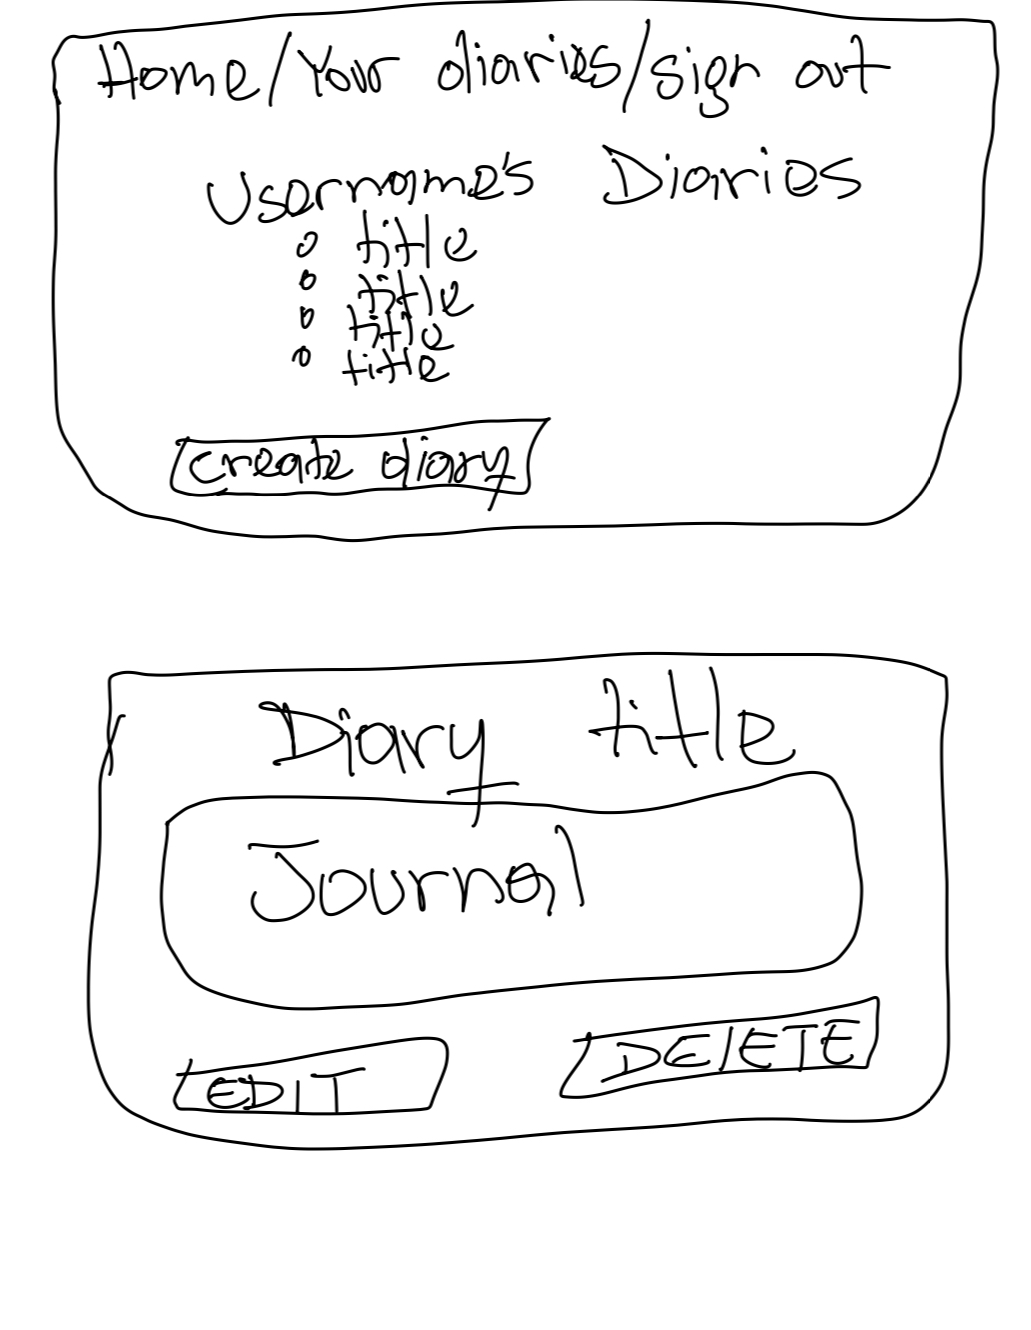 Home/Your diaries/sign out
Username's Diaries
title
title
title
title
create diary
Diary title
Journal
EDIT
DELETE